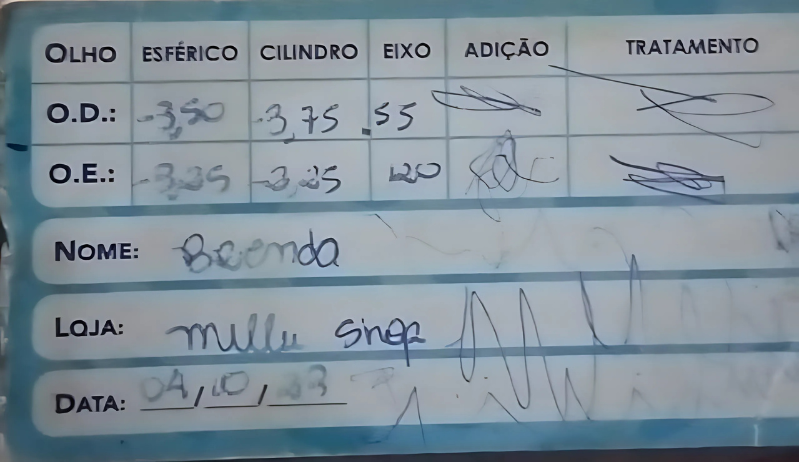 OLHO ESFÉRICO CILINDRO EIXO ADIÇÃO TRATAMENTO
O.D.: -3,50 -3,75 55
O.E.: -3,25 -3,25 120
NOME: Brenda
LOJA: millu shop
DATA: 04/10/23